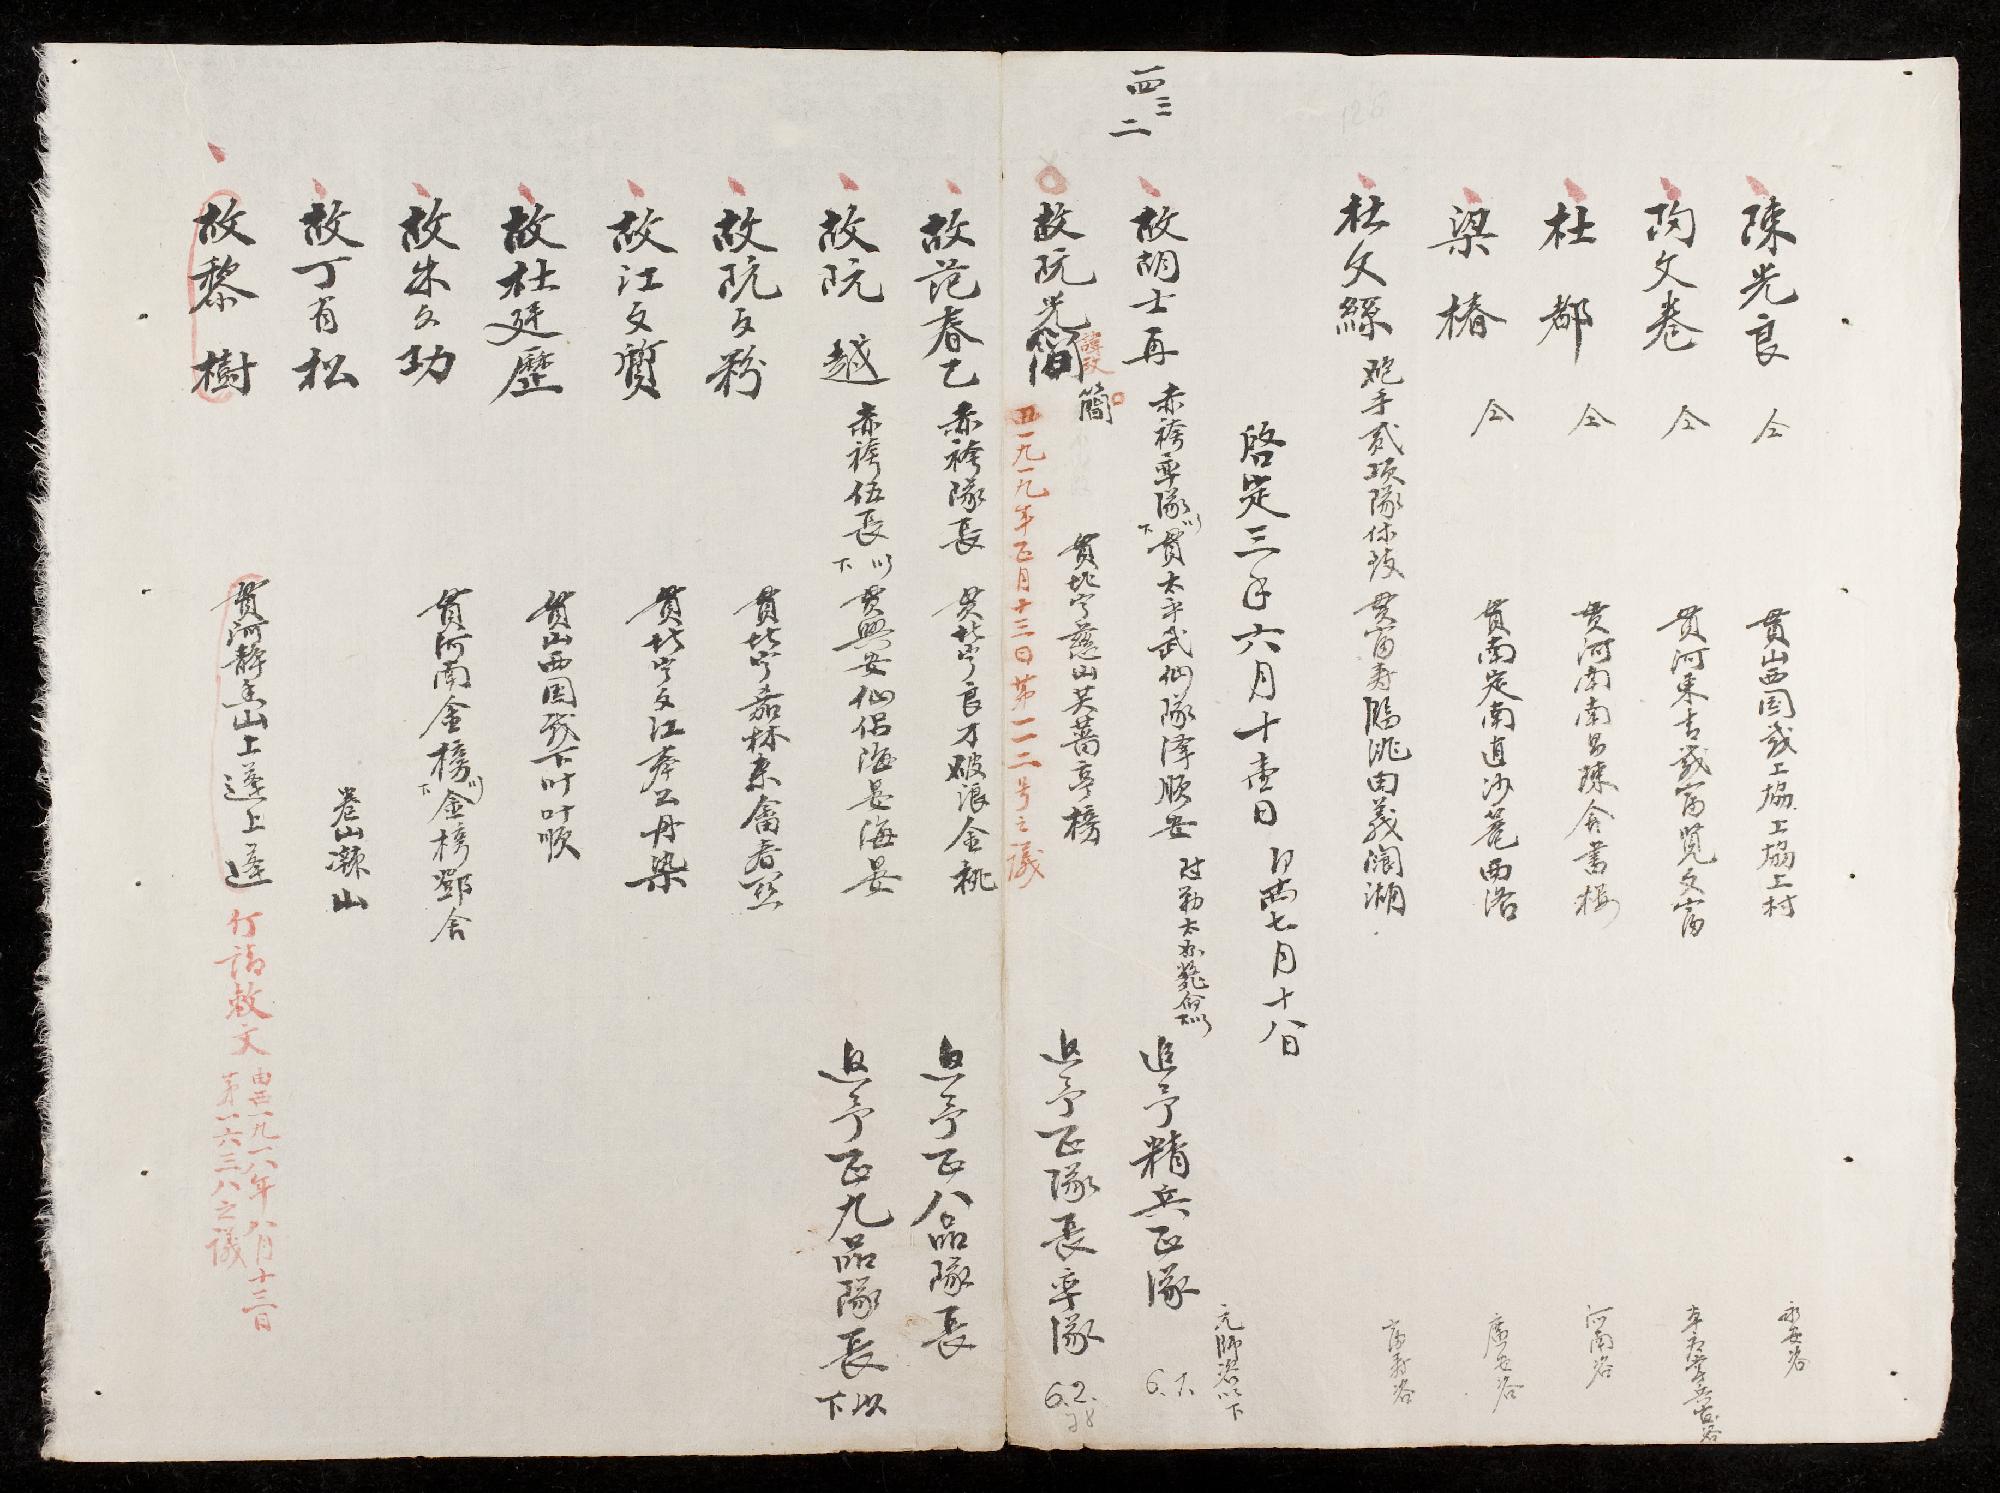 陳光良 仝 貫山西国威上協上協上村 永安咨
陶文卷 仝 貫河東古富文富
杜都 仝 貫河南南昌陳舍書樓 河南咨
梁椿 仝 貫南定南直沙菴西洛 廣安咨
杜文縣 炮手貳項隊 貫富寿臨洮由義澗湖 富寿咨
啓定三年六月十壹日 即西七月十八日
元帥咨以下
四三二
故胡士再 赤袴率隊以下 貫太平武仙隊澤順安 追予精兵正隊 6.7.
故阮光簡 諱改簡 貫北宁慈山芙蕾亭榜 追予正隊長率隊 6.2.
西一九一九年正月十三日第一一二号之議
故范春乙 赤袴隊長 貫北宁良才破浪金桃 追予正八品隊長
故阮越 赤袴伍長以下 貫興安仙侶海晏海晏 追予正九品隊長以下
故阮文粉 貫北宁嘉林
故江文質 貫北宁文江奉公丹染
故杜廷歷 貫山西国威下叶叶順
故朱文功 貫河南金榜以下金榜鄧舍
故丁有松
故黎樹 貫河静香山上蓬上蓬 行請敕文
由西一九一八年八月十三日
第一六三八之議